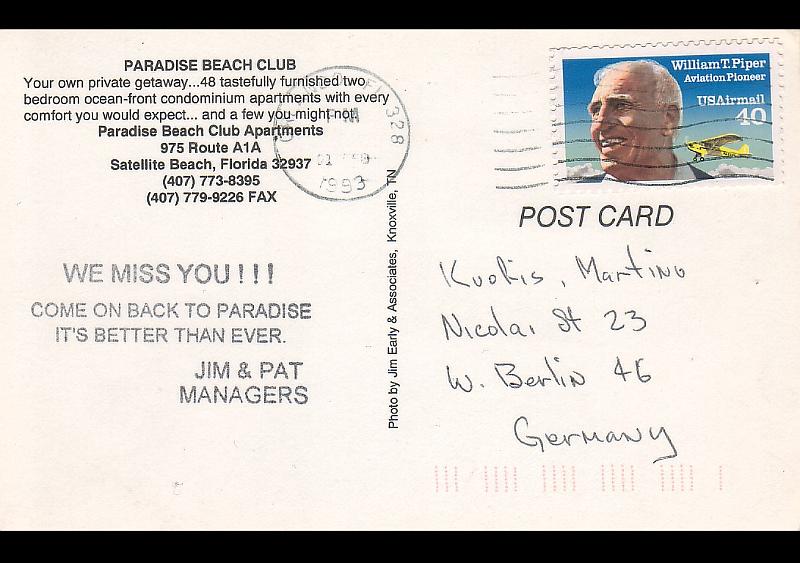 PARADISE BEACH CLUB
Your own private getaway...48 tastefully furnished two
bedroom ocean-front condominium apartments with every
comfort you would expect... and a few you might not.
Paradise Beach Club Apartments
975 Route A1A
Satellite Beach, Florida 32937
(407) 773-8395
(407) 779-9226 FAX
328
PM
1993
William T. Piper
Aviation Pioneer
USAirmail
40
POST CARD
WE MISS YOU!!!
COME ON BACK TO PARADISE
IT'S BETTER THAN EVER.
JIM & PAT
MANAGERS
Photo by Jim Early & Associates, Knoxville, TN
Kuokis, Martino
Nicolai St 23
W. Berlin 46
Germany